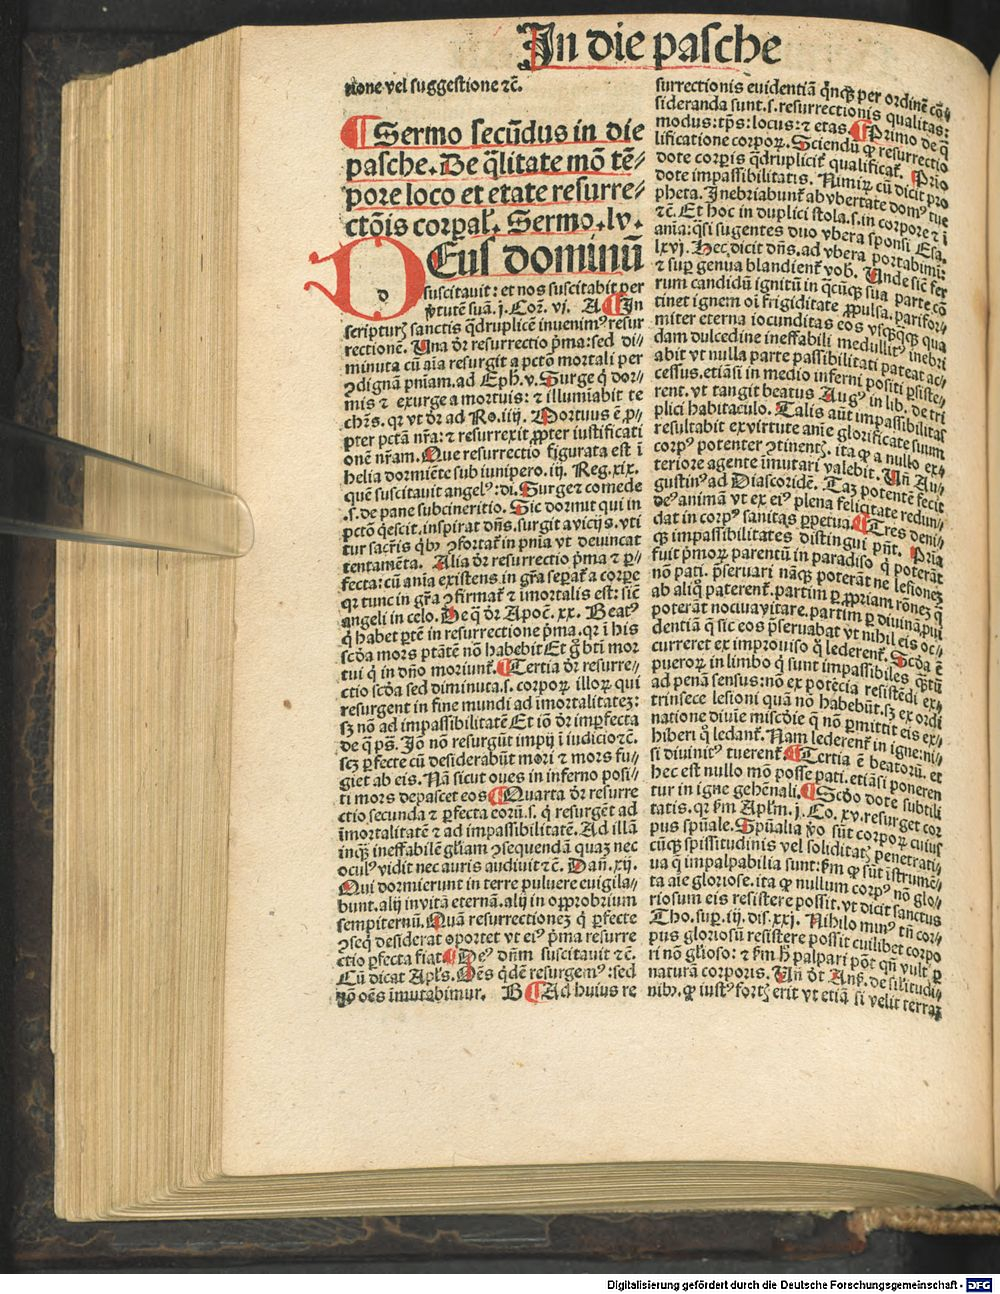 In die pasche
tione vel suggestione ⁊c̄.
¶ Sermo secūdus in die
pasche. De q̄litate mō tē-
pore loco et etate resurre-
ctōis corꝑal̕. Sermo .lv.
DEus dominū
d
suscitauit: et nos suscitabit per
v̕tutē suā. j. Cor̄. vj. A ¶ In
scripturꝫ sanctis q̄druplicē inuenimꝰ resur
rectionē. Una dr̄ resurrectio p̄ma: sed di-
minuta cū aīa resurgit a pctō mortali per
ꝯdignā pn̄iam. ad Eph. v. Surge q̇ dor-
mis ⁊ exurge a mortuis: ⁊ illumīabit te
chr̄s. qr vt dr̄ ad Ro. iiij. Mortuus ē ꝓ-
pter pctā nr̄a: ⁊ resurrexit ꝓpter iustificati
onē nr̄am. Que resurrectio figurata est ī
helia dormiēte sub iunipero. iij. Reg. xix.
quē suscitauit angelꝰ: di. Surge ⁊ comede
.s. de pane subcineritio. Sic dormit qui in
pctō q̇escit. inspirat dn̄s. surgit a vicijs. vti
tur sacr̄is q̇bꝰ ꝯfortat̄ in pn̄ia vt deuincat
tentamēta. Alia dr̄ resurrectio p̄ma ⁊ ꝑ-
fecta: cū anīa existens in gr̄a seꝑat̄ a corpe
qr tunc in gr̄a ꝯfirmat̄ ⁊ imortalis est: sicē
angeli in celo. De q̄ dr̄ Apoc̄. xx. Beatꝰ
q̇ habet ꝑtē in resurrectione p̄ma. qr ī his
scd̄a mors ptātē nō habebit Et q̊ bti mor
tui q̇ in dn̄o moriunt̄. ¶ Tertia dr̄ resurre-
ctio scd̄a sed diminuta. s. corporꝝ illorꝝ qui
resurgent in fine mundi ad imortalitateꝫ:
sꝫ nō ad impassibilitatē Et iō dr̄ imꝑfecta
de q̄ ps̄. Jō nō resurgūt impij ī iudicio ⁊c̄.
scꝫ ꝑfecte cū desiderabūt mori ⁊ mors fu-
giet ab eis. Nā sicut oues in inferno posi-
ti mors depascet eos ¶ Quarta dr̄ resurre
ctio secunda ⁊ ꝑfecta eorū. s. q̇ resurgēt ad
īmortalitatē ⁊ ad impassibilitatē. Ad illā
inq̄ꝫ ineffabilē gl̄iam ꝯsequendā quaꝫ nec
oculꝰ vidit nec auris audiuit ⁊c̄. Dan̄. xij.
Qui dormierunt in terre puluere euigila-
bunt. alij in vitā eternā. alij in opprobrium
sempiternū. Quā resurrectioneꝫ q̇ ꝑfecte
ꝯseq̇ desiderat oportet vt eiꝰ p̄ma resurre
ctio ꝑfecta fiat ¶ Deꝰ dn̄m suscitauit ⁊c̄.
Cū dicat Apl̄s. Oēs q̇dē resurgemꝰ: sed
nō oēs īmutabimur. B ¶ Ad huius re
surrectionis euidentiā q̇nqꝫ per ordinē cō-
sideranda sunt. s. resurrectionis qualitas:
modus: tp̄s: locus: ⁊ etas. ¶ Primo de q̄
lificatione corporꝝ. Sciendū ꝙ resurrectio
dote corpīs q̄druplicit̄ qualificat̄. Prio
dote impassibilitatis. Nuniꝝ cū dicit pro
pheta. Inebriabunt̄ ab vbertate domꝰ tue
⁊c̄. Et hoc in duplici stola. s. in corpore ⁊ ī
anīa: q̄si sugentes duo vbera sponsi Esa.
lxvj. Hec dicit dn̄s. ad vbera portabimī:
⁊ suꝑ genua blandient̄ vob̄. Unde sic̄ fer
rum candidū ignitū in q̄cūqꝫ sua parte cō
tinet ignem oī frigiditate ꝓpulsa. parifor-
miter eterna iocunditas eos vsq̄qꝫ qua
dam dulcedine ineffabili medullitꝰ inebri
abit vt nulla parte passibilitati pateat ac-
cessus. etiāsi in medio inferni positi ꝑsiste-
rent. vt tangit beatus Augꝰ in lib. de tri
plici habitaculo. Talis aūt impassibilitas
resultabit ex virtute anīe glorificate suum
corpꝰ potenter ꝯtinentꝫ. ita ꝙ a nullo ex-
teriore agente īmutari valebit. Un̄ Au-
gustinꝰ ad Diascoridē. Taꝫ potentē fecit
deꝰ animā vt ex eiꝰ plena felicitate redun-
dat in corpꝰ sanitas ꝑpetua. ¶ Tres deni-
qꝫ impassibilitates distingui pn̄t. Pria
fuit p̄morꝝ parentū in paradiso q̇ poterāt
nō pati. p̄seruari nāqꝫ poterāt ne lesioneꝫ
ab aliq̊ paterent̄. partim ꝑ ꝓpriam rōneꝫ q̄
poterāt nociua vitare. partim ꝑ diuinā ꝓui
dentiā q̄ sic eos p̄seruabat vt nihil eis oc-
curreret ex improuiso q̊ lederent̄. Scd̄a ē
puerorꝝ in limbo q̇ sunt impassibiles q̄tū
ad penā sensus: nō ex potēcia resistēdi ex-
trinsece lesioni quā nō habebūt. sꝫ ex ordi
natione diuīe miscd̄ie q̄ nō ꝑmittit eis ex-
hiberi q̊ ledant̄. Nam lederent̄ in igne: ni-
si diuinitꝰ tuerent̄. ¶ Tertia ē beatorū. et
hec est nullo mō posse pati. etiāsi poneren
tur in igne gehēnali. ¶ Scd̄o dote subtili
tatis. qr ẜm Apl̄m. j. Co. xv. resurget cor
pus spūale. Spūalia v̊o sūt corpora cuius
cūqꝫ spissitudinis vel soliditatꝫ penetrati-
ua q̇ impalpabilia sunt: ẜm ꝙ sūt īstrumē-
ta aīe gloriose. ita ꝙ nullum corpꝰ nō glo-
riosum eis resistere possit. vt dicit sanctus
Tho. suꝑ. iij. dis. xxj. Nihilo minꝰ tn̄ cor-
pus gloriosū resistere possit cuilibet corpo
ri nō gl̄ioso: ⁊ ẜm hͦ palpari pōt qn̄ vult ꝑ
naturā corporis. Un̄ dt̄ Ans̄. de sīlitudi-
nibꝰ. ꝙ iustꝰ fortꝫ erit vt etiā si velit terraꝫ
Digitalisierung gefördert durch die Deutsche Forschungsgemeinschaft - DFG